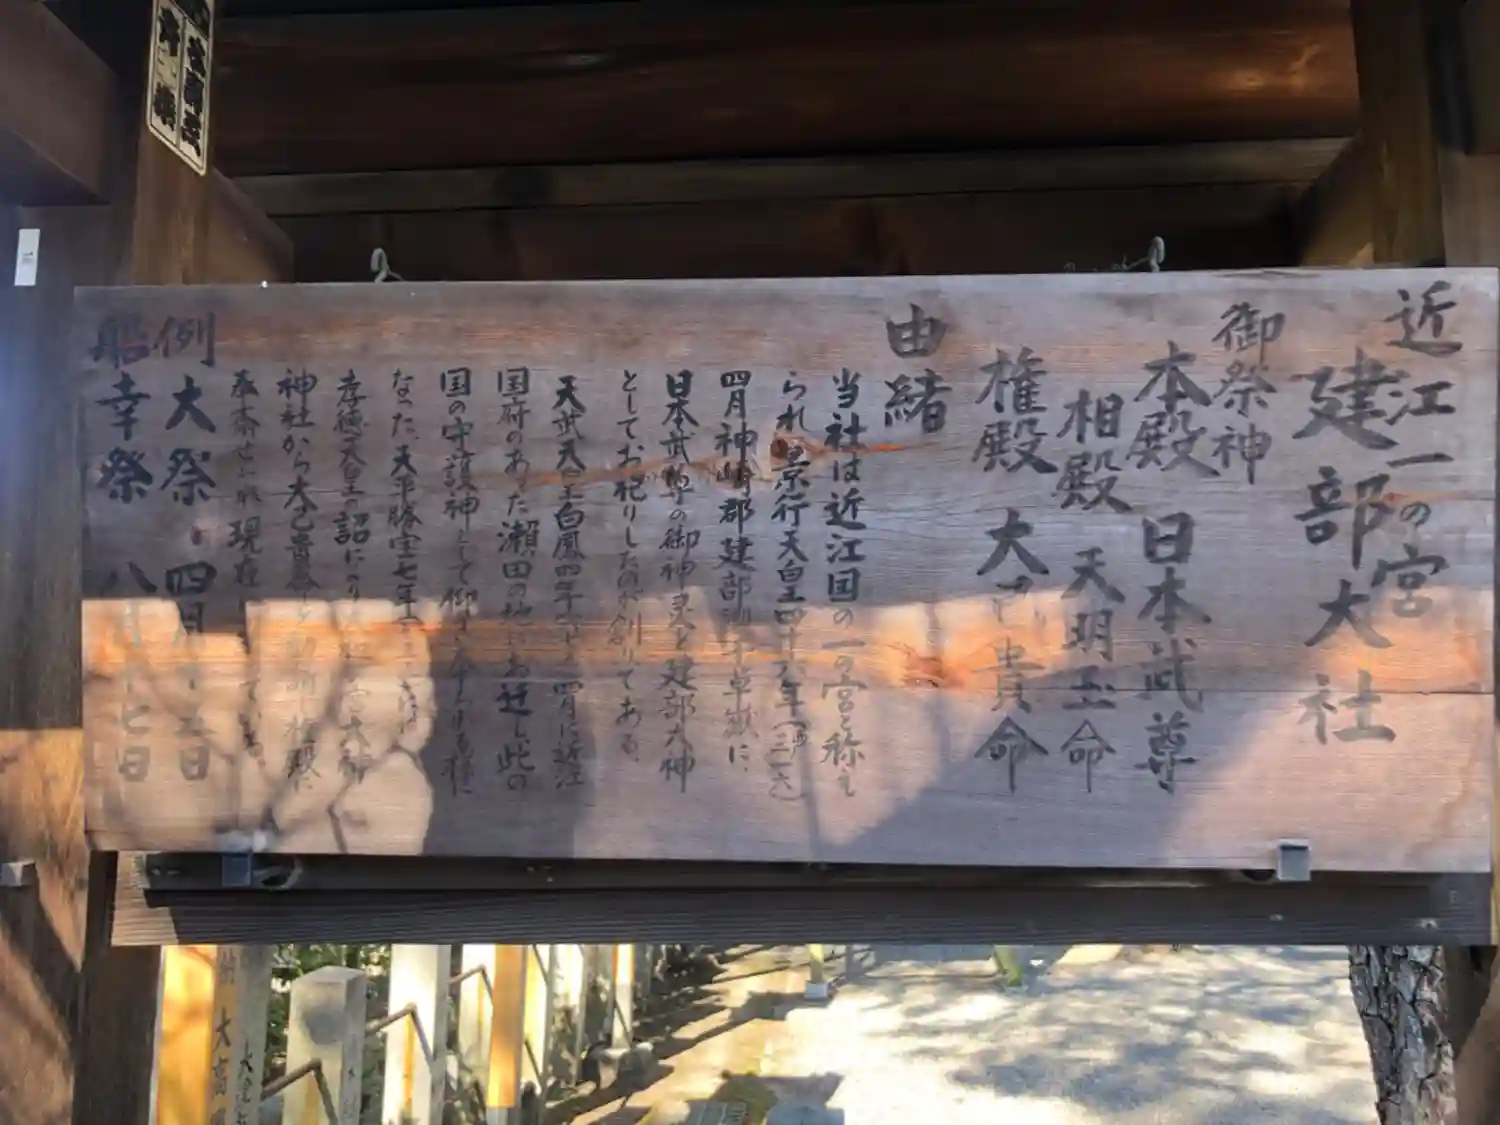 近江一の宮
建部大社
御祭神
本殿 日本武尊
相殿 天明玉命
権殿 大己貴命
由緒
当社は近江国の一の宮と称え
られ景行天皇四十六年(西暦三一六)
四月神崎郡建部郷千草嶽に、
日本武尊の御神霊を建部大神
としてお祀りしたのが創りである。
天武天皇白鳳四年 四月に近江
国府のあった瀬田の地にお遷し此の
国の守護神として
なった。天平勝宝七年
孝徳天皇の詔により 大神
神社から大己貴命を勧請し権殿に
奉斎せられ現在
例大祭 四月十五日
船幸祭 八月十七日